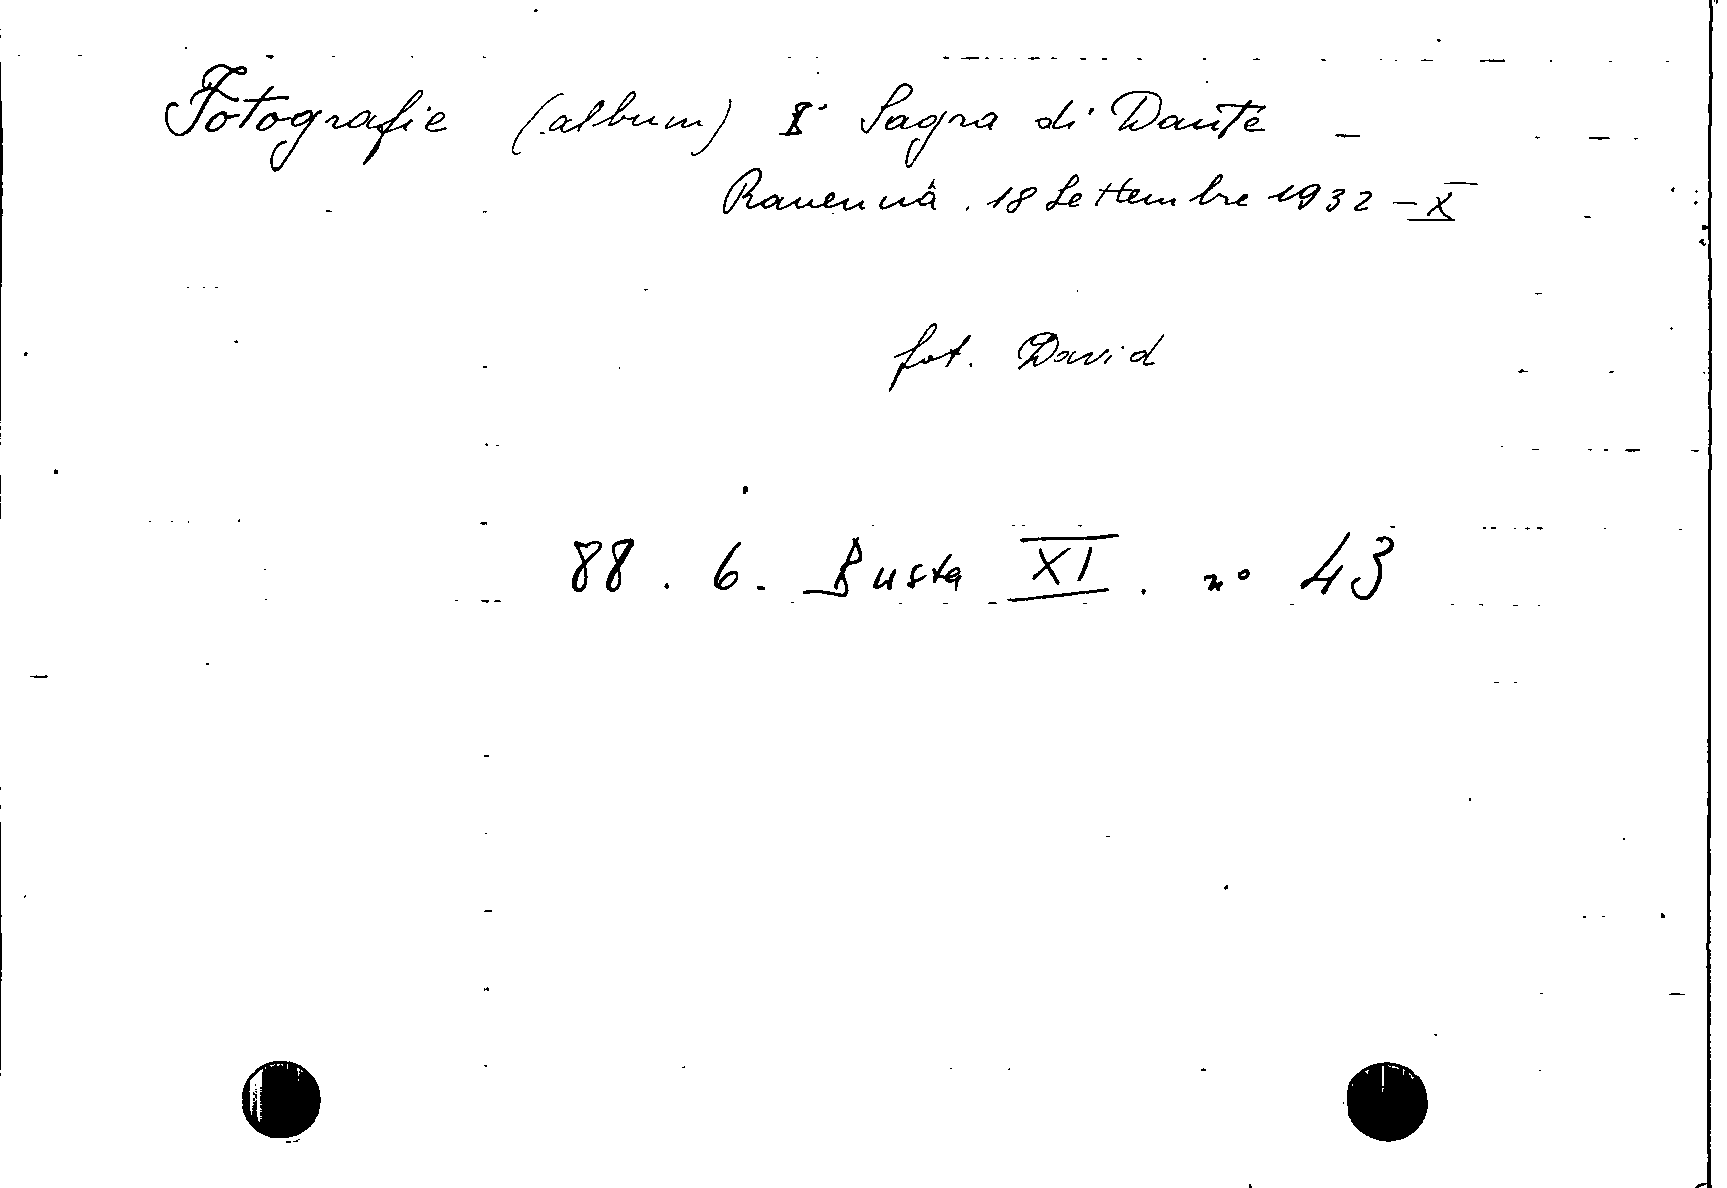 Fotografie (album) I° Sagra di Dante -
Ravenna. 18 Settembre 1932 - X
fot. David
88. 6. Busta XI. n° 43